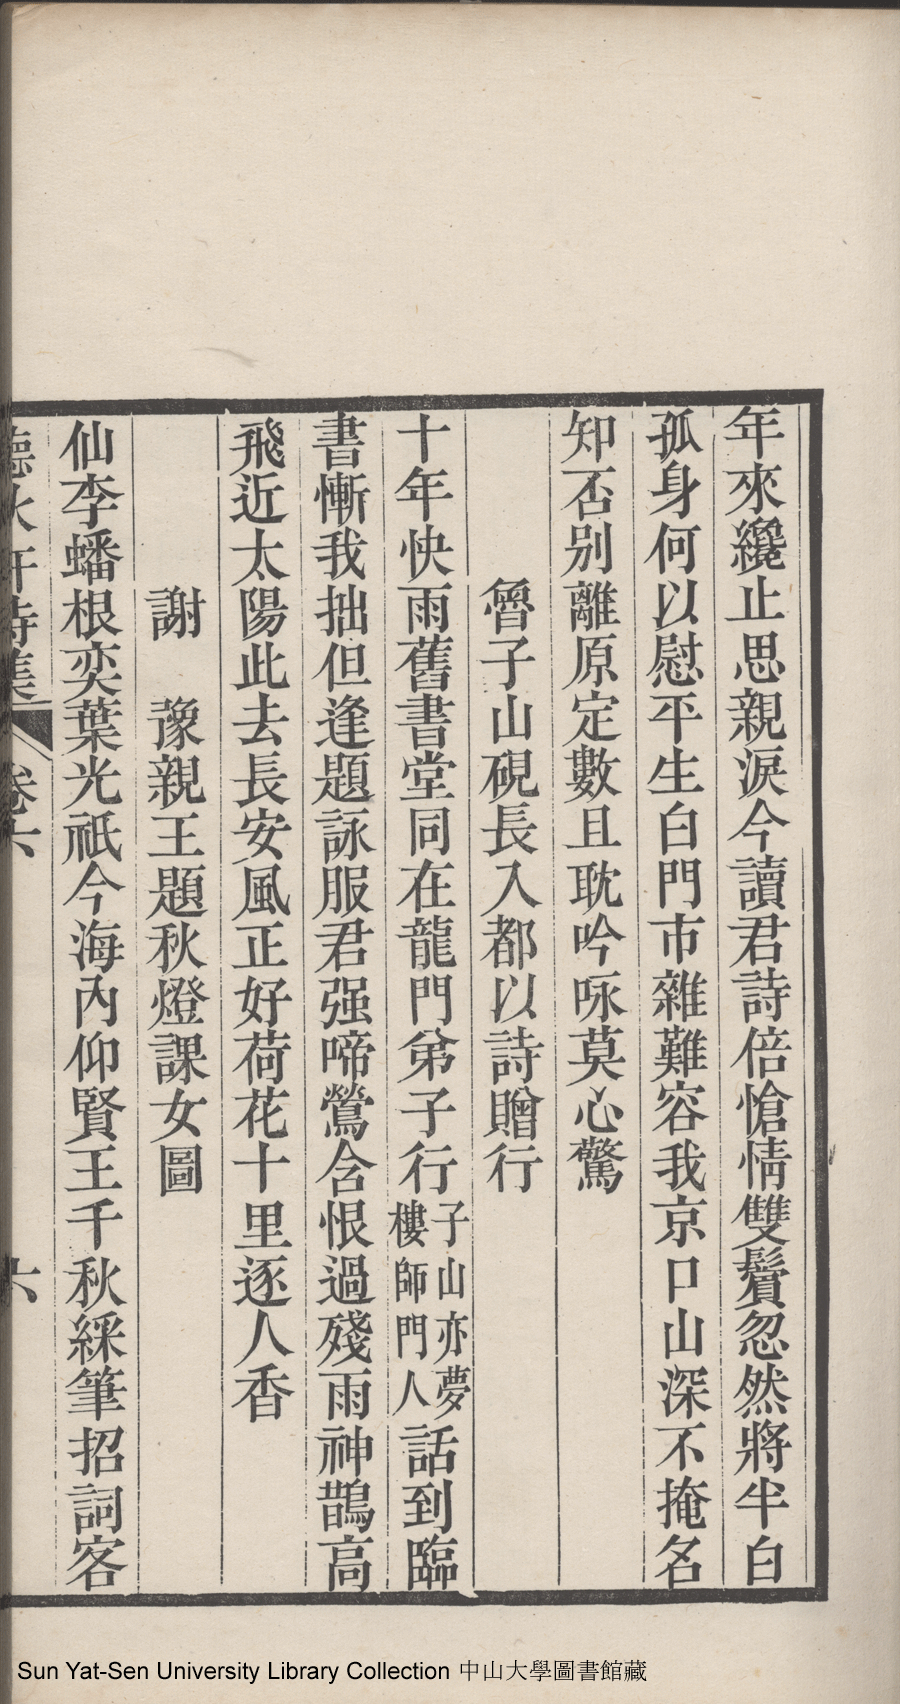 年來纔止思親淚今讀君詩倍愴情雙鬢忽然將半白
孤身何以慰平生白門市雜難容我京口山深不掩名
知否别離原定數且耽吟咏莫心驚
魯子山硯長入都以詩贈行
十年快雨舊書堂同在龍門弟子行子山亦夢樓師門人話到臨
書慚我拙但逢題詠服君强啼鶯含恨過殘雨神鵲高
飛近太陽此去長安風正好荷花十里逐人香
謝 豫親王題秋燈課女圖
仙李蟠根奕葉光祇今海內仰賢王千秋綵筆招詞客
聽秋軒詩集 卷六 六
Sun Yat-Sen University Library Collection 中山大學圖書館藏